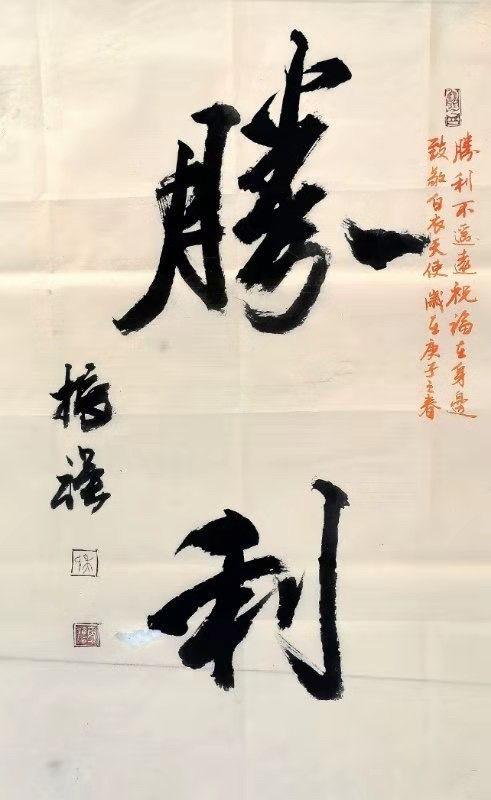 勝利不遙遠祝福在身邊
致敬白衣天使 歲在庚子之春
勝利
振强